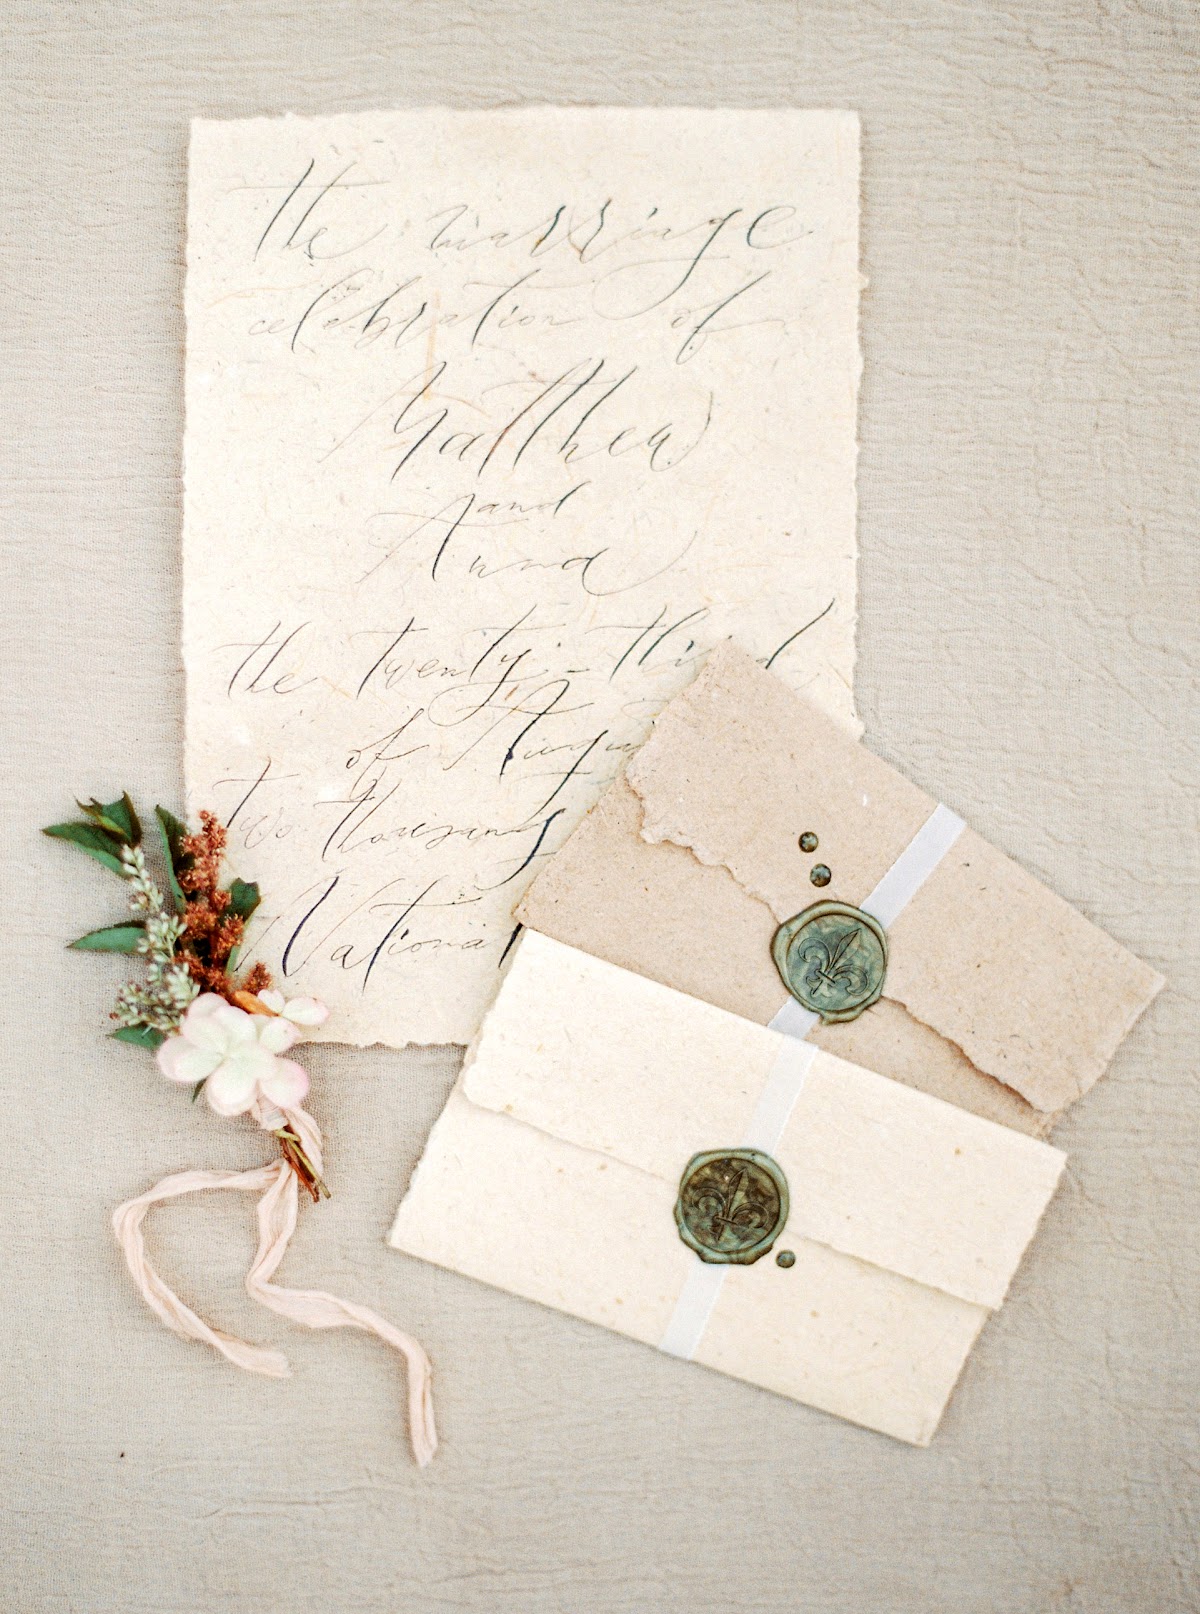 the marriage
celebration of
Matthew
and
Anna
the twenty-third
of Augu
two thousand
National